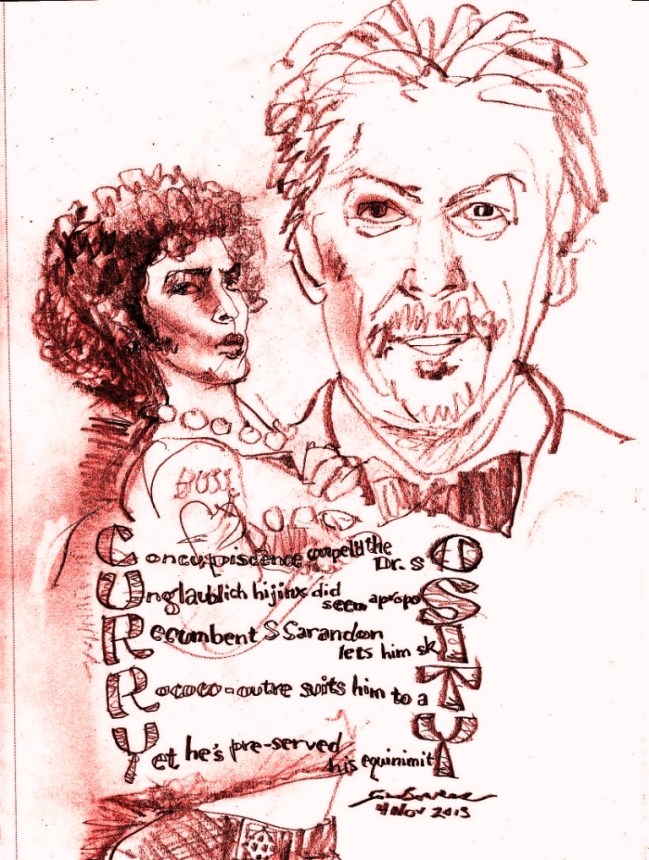 BOSS
Concupiscence compel'd the
Dr. s O
Unglaublich hijinx did
seem apropoS
Recumbent S Sarandon
lets him skI
Rococo-outre suits him to a T
Yet he's pre-served
his equinimitY
4 Nov 2013